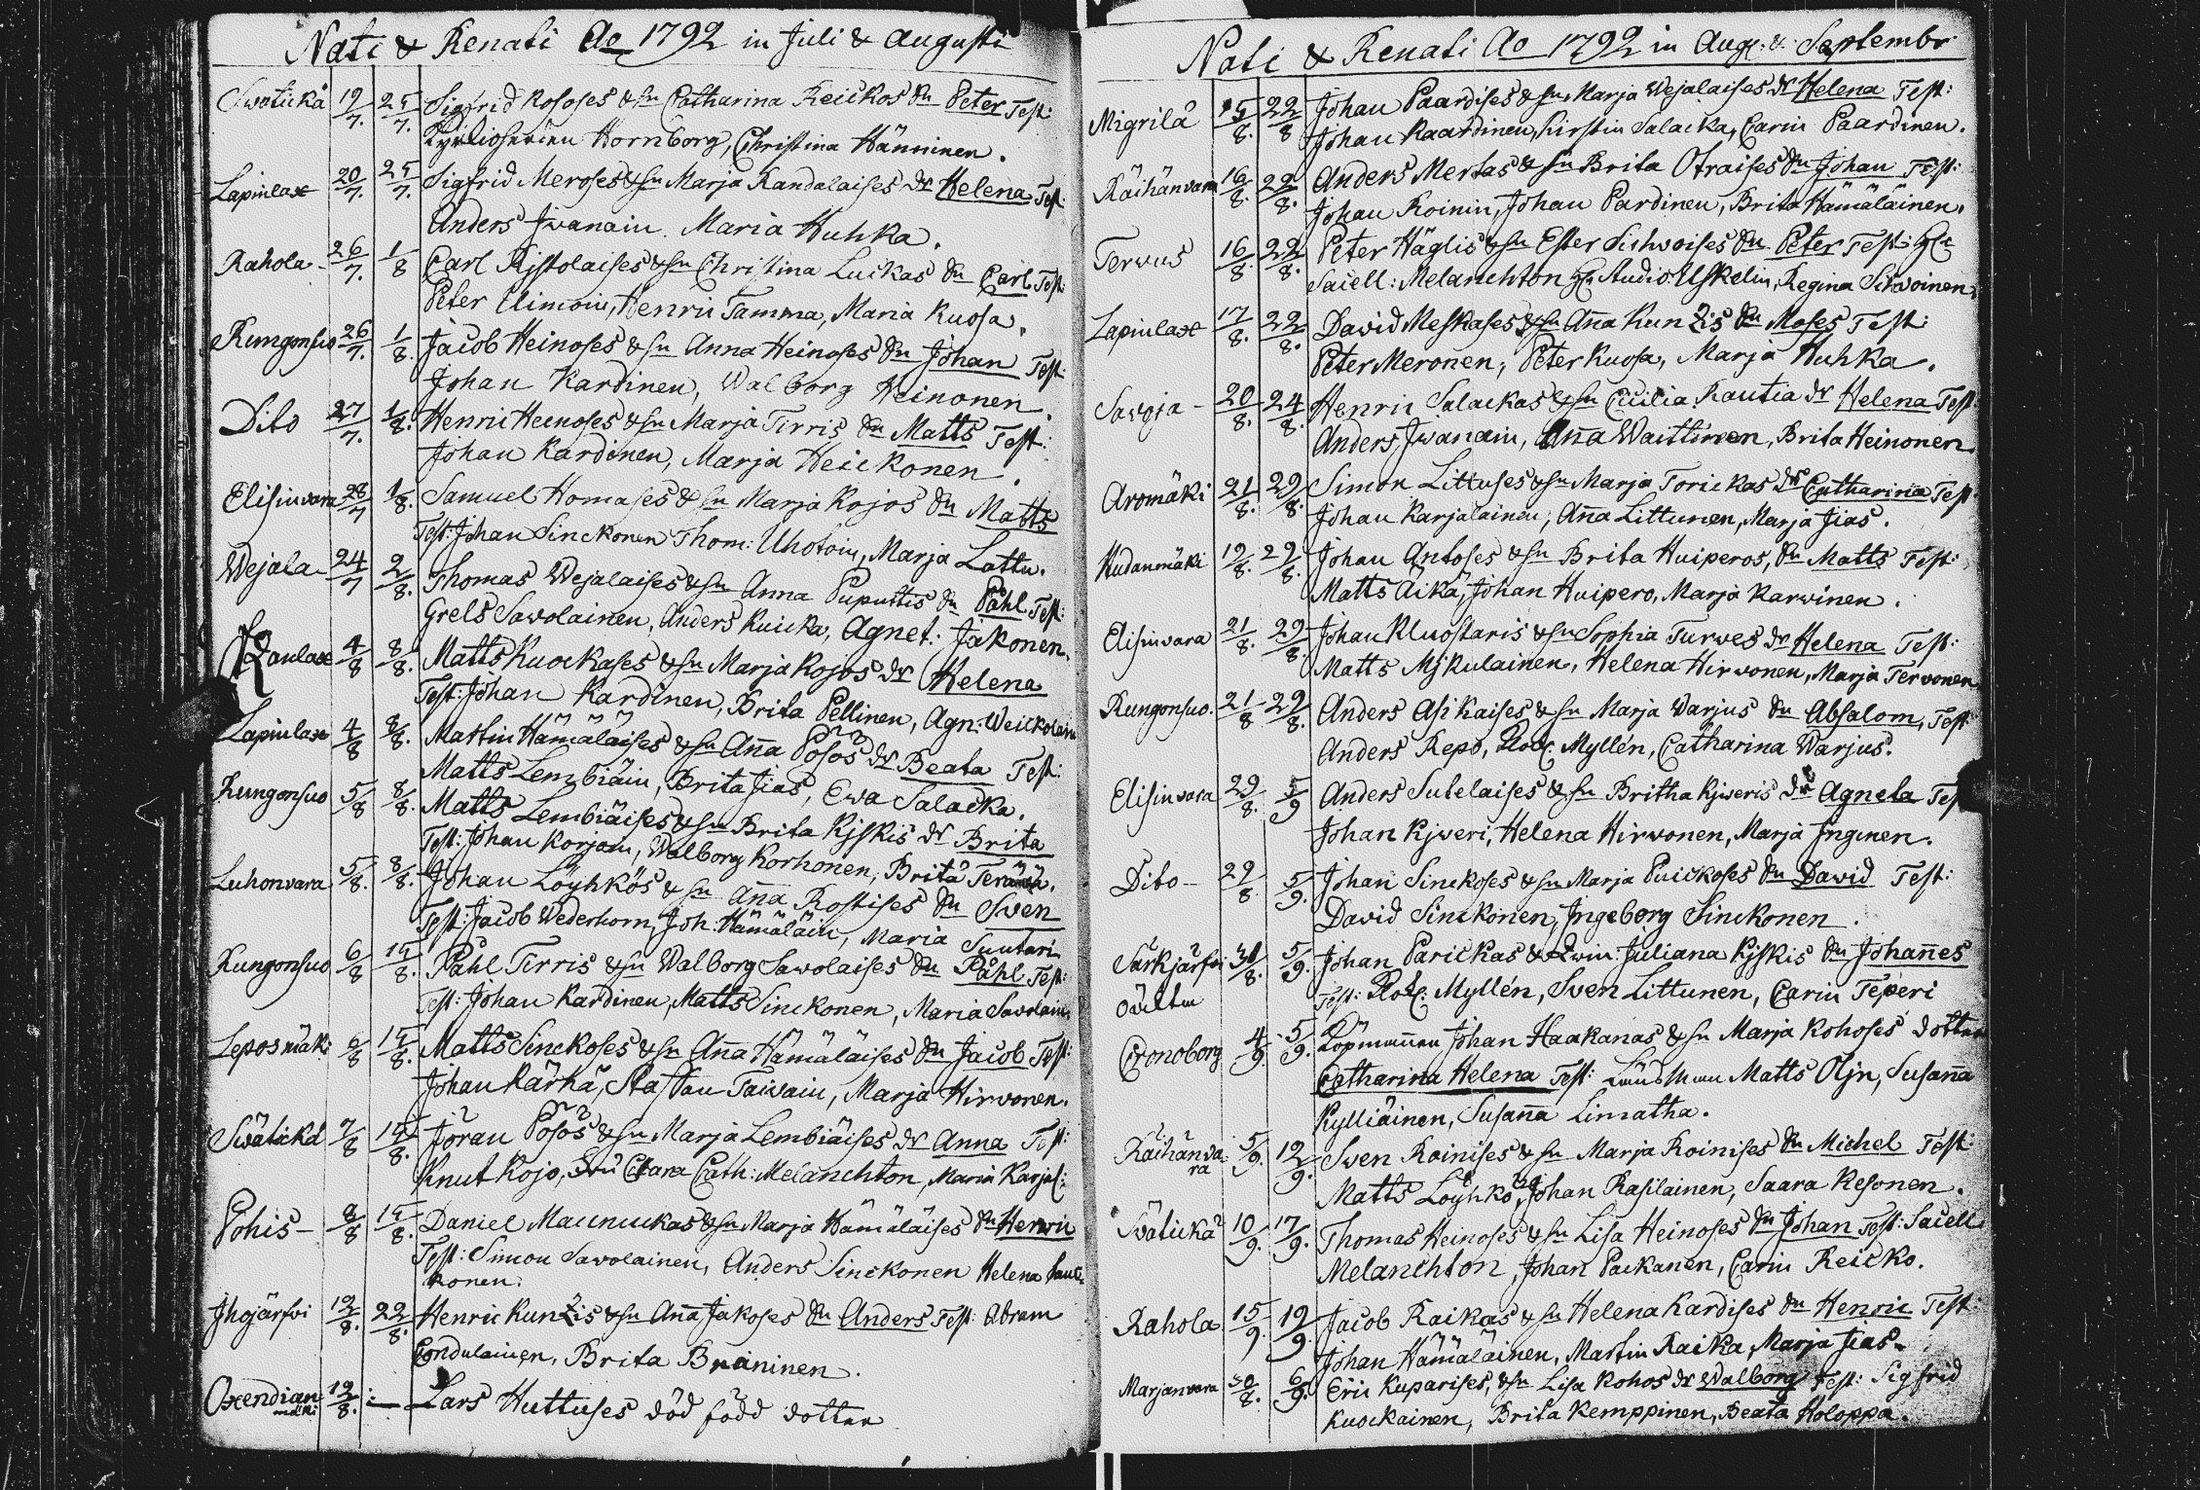 Nati & Renati Ao 1792 in Juli & Augusti
Swätickä 19/7. 25/7. Sigfrid Kososes & hu Catharina Reickos Sn Peter Test:
Hornborg, Christina Hänninen.
Lapinlax 20/7. 25/7. Sigfrid Meroses & hu Marja Kandalaises dr Helena Test:
Anders Iwanain. Maria Huhka.
Rahola 26/7. 1/8 Carl Ristolaises & hu Christina Luckas Sn Carl Test:
Peter Elimoin, Henric Tamma, Maria Kuosa.
Kungonsuo 26/7. 1/8. Jacob Heinoses & hu Anna Heinoses Sn Johan Test:
Johan Kardinen, Walborg Heinonen.
Dito 27/7. 1/8. Henric Heinoses & hu Marja Tirris Sn Matts Test:
Johan Kardinen, Marja Heickonen.
Elisinvara 28/7 1/8. Samuel Homases & hu Marja Kojos Sn Matts
Test: Johan Sinckonen Thom: Uhotoin, Marja Lattu.
Wejala 24/7 2/8. Thomas Wejalaises & hu Anna Puputtis Sn Påhl Test:
Grels Sawolainen, Anders Kuicka, Agnet: Jäkonen.
4/8 8/8. Matts Kuockases & hu Marja Kojos dr Helena
Test: Johan Kardinen, Brita Pellinen, Agn: Weickolain
Lapinlax 4/8 8/8. Mattin Hämäläises & hu Aña Pösös dr Beata Test:
Matts Lembiäin, Brita Jias, Ewa Salacka.
Kungonsuo 5/8 8/8. Matts Lembiäises & hu Brita Kjskis dr Brita
Test: Johan Korjoin, Walborg Korhonen, Brita
Luhonvara 5/8. 8/8. Johan Löyhkös & hu Aña Rostises Sn Sven
Test: Jacob Wederhorn, Joh: Hämäläin, Maria Suutari
Kungonsuo 6/8 15/8. Påhl Tirris & hu Walborg Sawolaises Sn Påhl Test:
Test: Johan Kardinen, Matts Sinckonen, Maria Sawolain.
Leposmäki 6/8 15/8. Matts Sinckoses & hu Aña Hämäläises Sn Jacob Test:
Johan Kärhä, Staffan Taiwain, Marja Hirwonen.
Swätickä 7/8 15/8. Jöran Pösös & hu Marja Lembiäises dr Anna Test:
Knut Kojo, Clara Cath: Melanchton, Maria Karjal:
Pohis 8/8 15/8. Daniel Maunuckas & hu Marja Hämäläises Sn Henric
Test: Simon Sawolainen, Anders Sinckonen Helena
konen.
Jhojärfvi 12/8. 22/8. Henric Kunzis & hu Aña Jäkoses Sn Anders Test: Abram
Condulainen, Brita Bräninen.
Oxendianmäki 19/8. Lars Huttuses död född dotter
Nati & Renati Ao 1792 in Aug: & Septembr
Migrilä 15/8. 22/8 Johan Paardises & hu Marja Wejalaises dr Helena Test:
Johan Kaardinen, Kirstin Salacka, Carin Paardinen.
Räihänvara 16/8. 22/8. Anders Mertas & hu Brita Otraises Sn Johan Test:
Johan Koinin, Johan Pardinen, Brita Hämäläinen.
Tervus 16/8. 22/8. Peter Häglis & hu Ester Sihwoises Sn Peter Test: Hr
Sacell: Melanchton Hr Studio: Uskelin, Regina Sihvoinen.
Lapinlax 17/8. 22/8. David Meskases & hu Aña Kunzis Sn Moses Test:
Peter Meronen, Peter Kuosa, Marja Huhka.
Savoja 20/8. 24/8. Henric Salackas & hu Cicilia Rautia dr Helena Test:
Anders Iwanain, Aña Waittinen, Brita Heinonen
Aromäki 21/8. 29/8. Simon Littuses & hu Marja Torickas dr Catharina Test:
Johan Karjalainen, Aña Littunen, Marja Jias.
Hudanmäki 19/8. 29/8. Johan Antoses & hu Brita Huiperos, Sn Matts Test:
Matts Äikä, Johan Huipero, Marja Karwinen.
Elisinvara 21/8. 29/8. Johan Kluostaris & hu Sophia Turwes dr Helena Test:
Matts Mjkulainen, Helena Hirwonen, Marja Terwonen
Kungonsuo. 21/8 29/8. Anders Asikaises & hu Marja Warjus Sn Absalom, Test:
Anders Repo, Kloc: Myllén, Catharina Warjus.
Elisinvara 29/8. 5/9 Anders Sutelaises & hu Britha Kjweris dr Agneta Test
Johan Kjweri, Helena Hirwonen, Marja Inginen.
Dito 29/8. 5/9. Johan Sinckoses & hu Marja Puickoses Sn David Test:
David Sinckonen, Ingeborg Sinckonen.
Särkjärfvi 31/8. 5/9. Johan Parickas & Qwin: Juliana Kjskis Sn Johañes
oäckta Test: Kloc: Myllén, Sven Littunen, Carin Teperi
Cronoborg 4/9. 5/9. Köpmannen Johan Haakanas & hu Marja Kohoses dotter
Catharina Helena Test: Länsman Matts Oljn, Susaña
Kylliäinen, Susaña Limatha.
Räihänvara 5/9. 12/9. Sven Koinises & hu Marja Koinises Sn Michel Test:
Matts Löyhkö, Johan Rasilainen, Saara Kesonen.
Swätickä 10/9. 17/9. Thomas Heinoses & hu Lisa Heinoses Sn Johan Test: Sacell
Melanchton, Johan Packanen, Carin Reicko.
Rahola 15/9. 19/9. Jacob Raikas & hu Helena Kardises Sn Henric Test:
Johan Hämäläinen, Martin Raika, Marja Jias.
Marjanvara 30/8. 6/9. Eric Kuparises, & hu Lisa Kohos dr Walborg Test: Sigfrid
Kuockainen, Brita Kemppinen, Beata Holoppa.